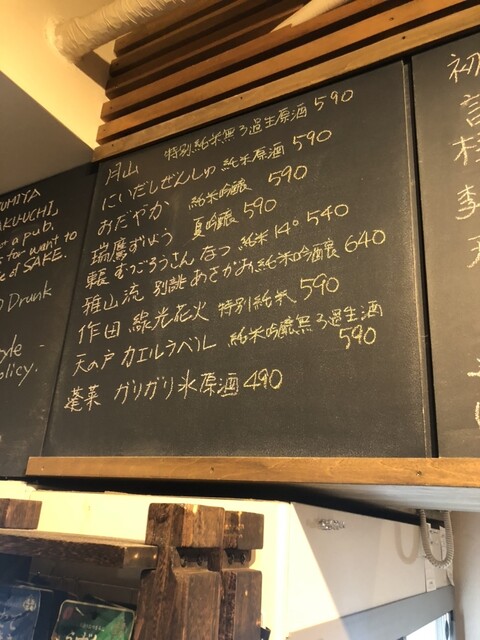 月山 特別純米無ろ過生原酒 590
にいだしぜんしゅ 純米原酒 590
おだやか 純米吟醸 590
瑞鷹ずいよう 夏吟醸 590
むつごろうさん なつ 純米 14° 540
雅山流 別誂 あさがお 純米吟醸 640
作田 線光花火 特別純米 590
天の戸 カエルラベル 純米吟醸無ろ過生酒
590
蓬莱 ガリガリ氷原酒 490
t a pub.
for want to
of SAKE.
Drunk
olicy.
初
李